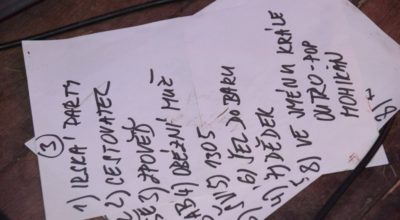 3
1) IRSKÁ PARTY
2) CESTOVATEL
3) ZPOVĚĎ
4) OBĚŽNÍ MUŽ
5) 1305
6) JEL DO BARU
7) DĚDEK
8) VE JMÉNU KRÁLE
OUTRO-POP
MOHYKÁN